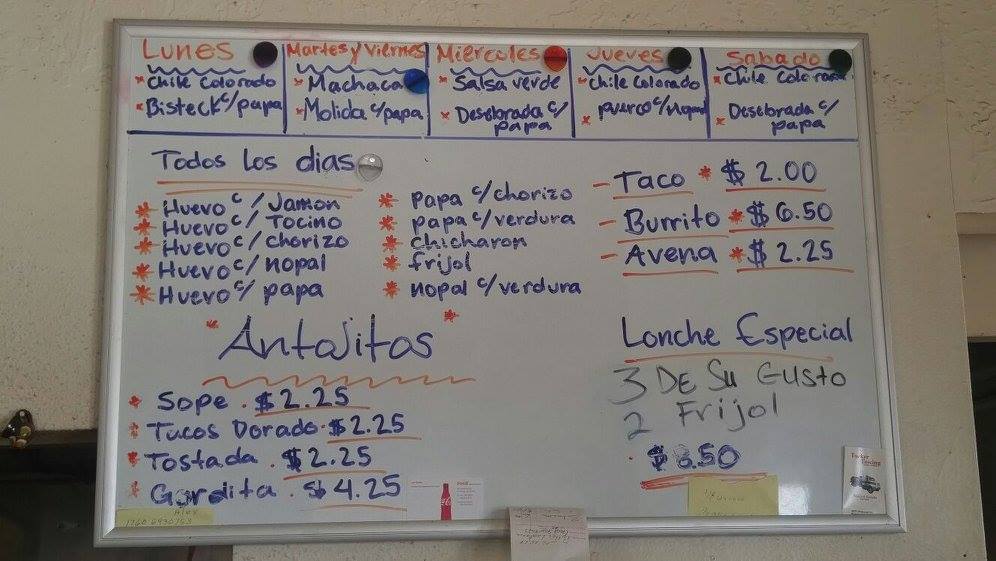 Lunes
* Chile Colorado
* Bisteck c/ papa
Martes y Viernes
* Machaca
* Molida c/papa
Miercoles
* Salsa verde
* Desebrada c/
papa
Jueves
* Chile Colorado
* puerco c/nopal
Sabado
* Chile Colorado
* Desebrada c/
papa
Todos los dias
* Huevo c/ Jamon
* Huevo c/ Tocino
* Huevo c/ chorizo
* Huevo c/ nopal
* Huevo c/ papa
* papa c/chorizo
* papa c/verdura
* chicharon
* frijol
* nopal c/verdura
- Taco * $ 2.00
- Burrito * $ 6.50
- Avena * $ 2.25
* Antojitos *
* Sope . $ 2.25
* Tacos Dorado . $ 2.25
* Tostada . $ 2.25
* Gordita . $ 4.25
Lonche Especial
3 DE Su Gusto
2 Frijol
Alex